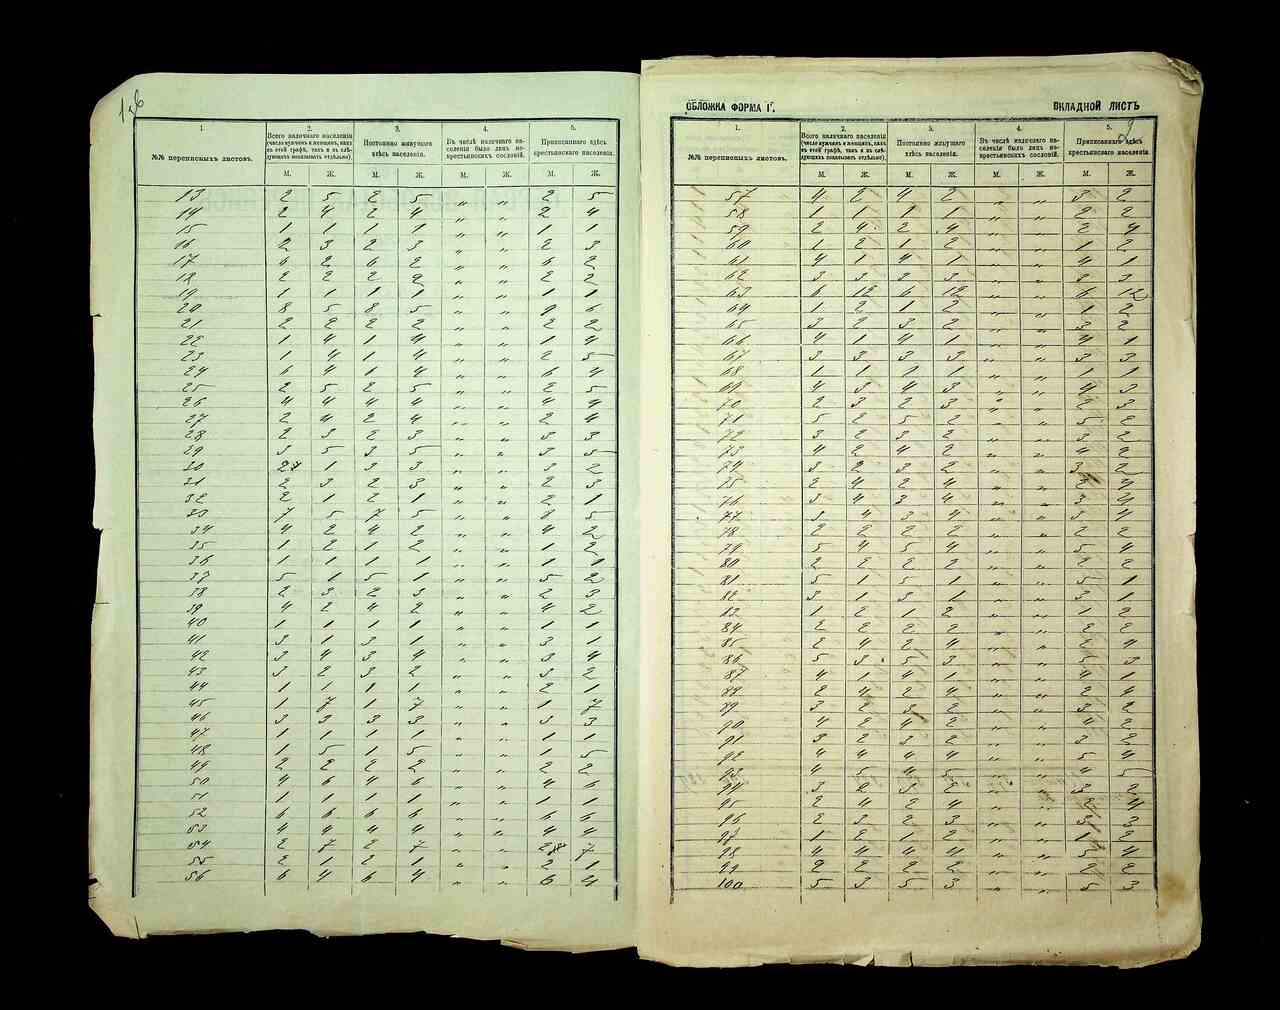 1.
2.
3.
4.
5.
№№ переписныхъ листовъ.
Всего наличнаго населенія
(число мужчинъ и женщинъ, какъ
въ этой графѣ, такъ и въ слѣ-
дующихъ показывать отдѣльно).
Постоянно живущаго
здѣсь населенія.
Въ числѣ наличнаго на-
селенія было лицъ не-
крестьянскихъ сословій.
Приписаннаго здѣсь
крестьянскаго населенія.
М. Ж. М. Ж. М. Ж. М. Ж.
13 2 5 2 5 „ „ 2 5
14 2 4 2 4 „ „ 2 4
15 1 1 1 1 „ „ 1 1
16 2 3 2 3 „ „ 2 3
17 6 2 6 2 „ „ 6 2
18 2 2 2 2 „ „ 2 2
19 1 1 1 1 „ „ 1 1
20 8 5 8 5 „ „ 9 6
21 2 2 2 2 „ „ 2 2
22 1 4 1 4 „ „ 1 4
23 1 4 1 4 „ „ 2 5
24 6 4 1 4 „ „ 6 4
25 2 5 2 5 „ „ 2 5
26 4 4 4 4 „ „ 4 4
27 2 4 2 4 „ „ 2 4
28 2 3 2 3 „ „ 3 3
29 3 5 3 5 „ „ 3 5
30 1 3 3 „ „ 3 2
31 2 3 2 3 „ „ 2 3
32 2 1 2 1 „ „ 2 1
33 7 5 7 5 „ „ 8 5
34 4 2 4 2 „ „ 4 2
35 1 2 1 2 „ „ 1 2
36 1 1 1 1 „ „ 1 1
37 5 1 5 1 „ „ 5 2
38 2 3 2 3 „ „ 2 3
39 4 2 4 2 „ „ 4 2
40 1 1 1 1 „ „ 1 1
41 3 1 3 1 „ „ 3 1
42 3 4 3 4 „ „ 3 4
43 3 2 3 2 „ „ 3 2
44 1 1 1 1 „ „ 2 1
45 1 7 1 7 „ „ 1 7
46 3 3 3 3 „ „ 3 3
47 1 1 1 1 „ „ 1 1
48 1 5 1 5 „ „ 1 5
49 2 2 2 2 „ „ 2 2
50 4 6 4 6 „ „ 4 6
51 1 1 1 1 „ „ 1 1
52 6 6 6 6 „ „ 6 6
53 4 4 4 4 „ „ 4 4
54 2 7 2 7 „ „ 7
55 2 1 2 1 „ „ 2 1
56 6 4 6 4 „ „ 6 4
ОБЛОЖКА ФОРМА Г.
ВКЛАДНОЙ ЛИСТЪ
1.
2.
3.
4.
5.
№№ переписныхъ листовъ.
Всего наличнаго населенія
(число мужчинъ и женщинъ, какъ
въ этой графѣ, такъ и въ слѣ-
дующихъ показывать отдѣльно).
Постоянно живущаго
здѣсь населенія.
Въ числѣ наличнаго на-
селенія было лицъ не-
крестьянскихъ сословій.
Приписаннаго здѣсь
крестьянскаго населенія.
М. Ж. М. Ж. М. Ж. М. Ж.
57 4 2 4 2 „ „ 3 2
58 1 1 1 1 „ „ 2 2
59 2 4 2 4 „ „ 2 4
60 1 2 1 2 „ „ 1 2
61 4 1 4 1 „ „ 4 1
62 3 3 2 3 „ „ 3 3
63 6 12 6 12 „ „ 6 12
64 1 2 1 2 „ „ 1 2
65 3 2 3 2 „ „ 3 2
66 4 1 4 1 „ „ 4 1
67 3 3 3 3 „ „ 3 3
68 1 1 1 1 „ „ 1 1
69 4 3 4 3 „ „ 4 3
70 2 3 2 3 „ „ 2 3
71 5 2 5 2 „ „ 5 2
72 3 2 3 2 „ „ 3 2
73 4 2 4 2 „ „ 4 2
74 3 2 3 2 „ „ 3 2
75 2 4 2 4 „ „ 4
76 3 4 3 4 „ „ 3 4
77 3 4 3 4 „ „ 3 4
78 2 2 2 2 „ „ 2 2
79 5 4 5 4 „ „ 5 4
80 2 2 2 2 „ „ 2 2
81 5 1 5 1 „ „ 5 1
82 3 1 3 1 „ „ 3 1
83 1 2 1 2 „ „ 1 2
84 2 2 2 2 „ „ 2 2
85 2 4 2 4 „ „ 2 4
86 5 3 5 3 „ „ 5 3
87 4 1 4 1 „ „ 4 1
88 2 4 2 4 „ „ 2 4
89 3 2 3 2 „ „ 3 2
90 4 2 4 2 „ „ 4 2
91 3 2 3 2 „ „ 3 2
92 4 4 4 4 „ „ 5 4
93 4 5 4 5 „ „ 4 5
94 3 2 3 2 „ „ 3 2
95 2 4 2 4 „ „ 2 4
96 2 3 2 3 „ „ 3 3
97 1 2 1 2 „ „ 1 2
98 4 4 4 4 „ „ 5 4
99 2 2 2 2 „ „ 2 2
100 5 3 5 3 „ „ 5 3